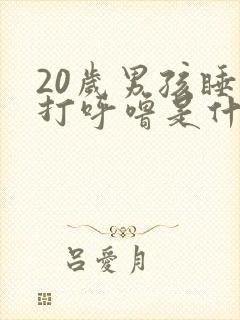 20歲男孩睡
打呼嚕是什
呂愛月